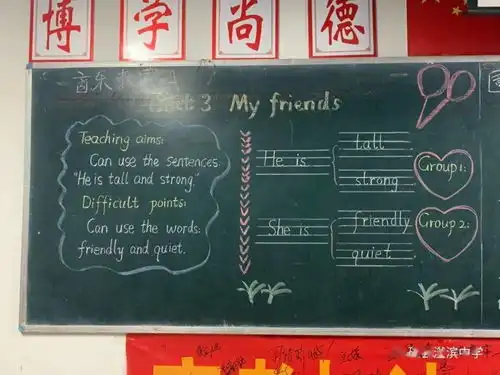 博学尚德
音乐
Unit 3 My friends
Teaching aims:
Can use the sentences
"He is tall and strong."
Difficult points:
Can use the words:
friendly and quiet.
He is
tall
strong
She is
friendly
quiet
Group1:
Group 2: